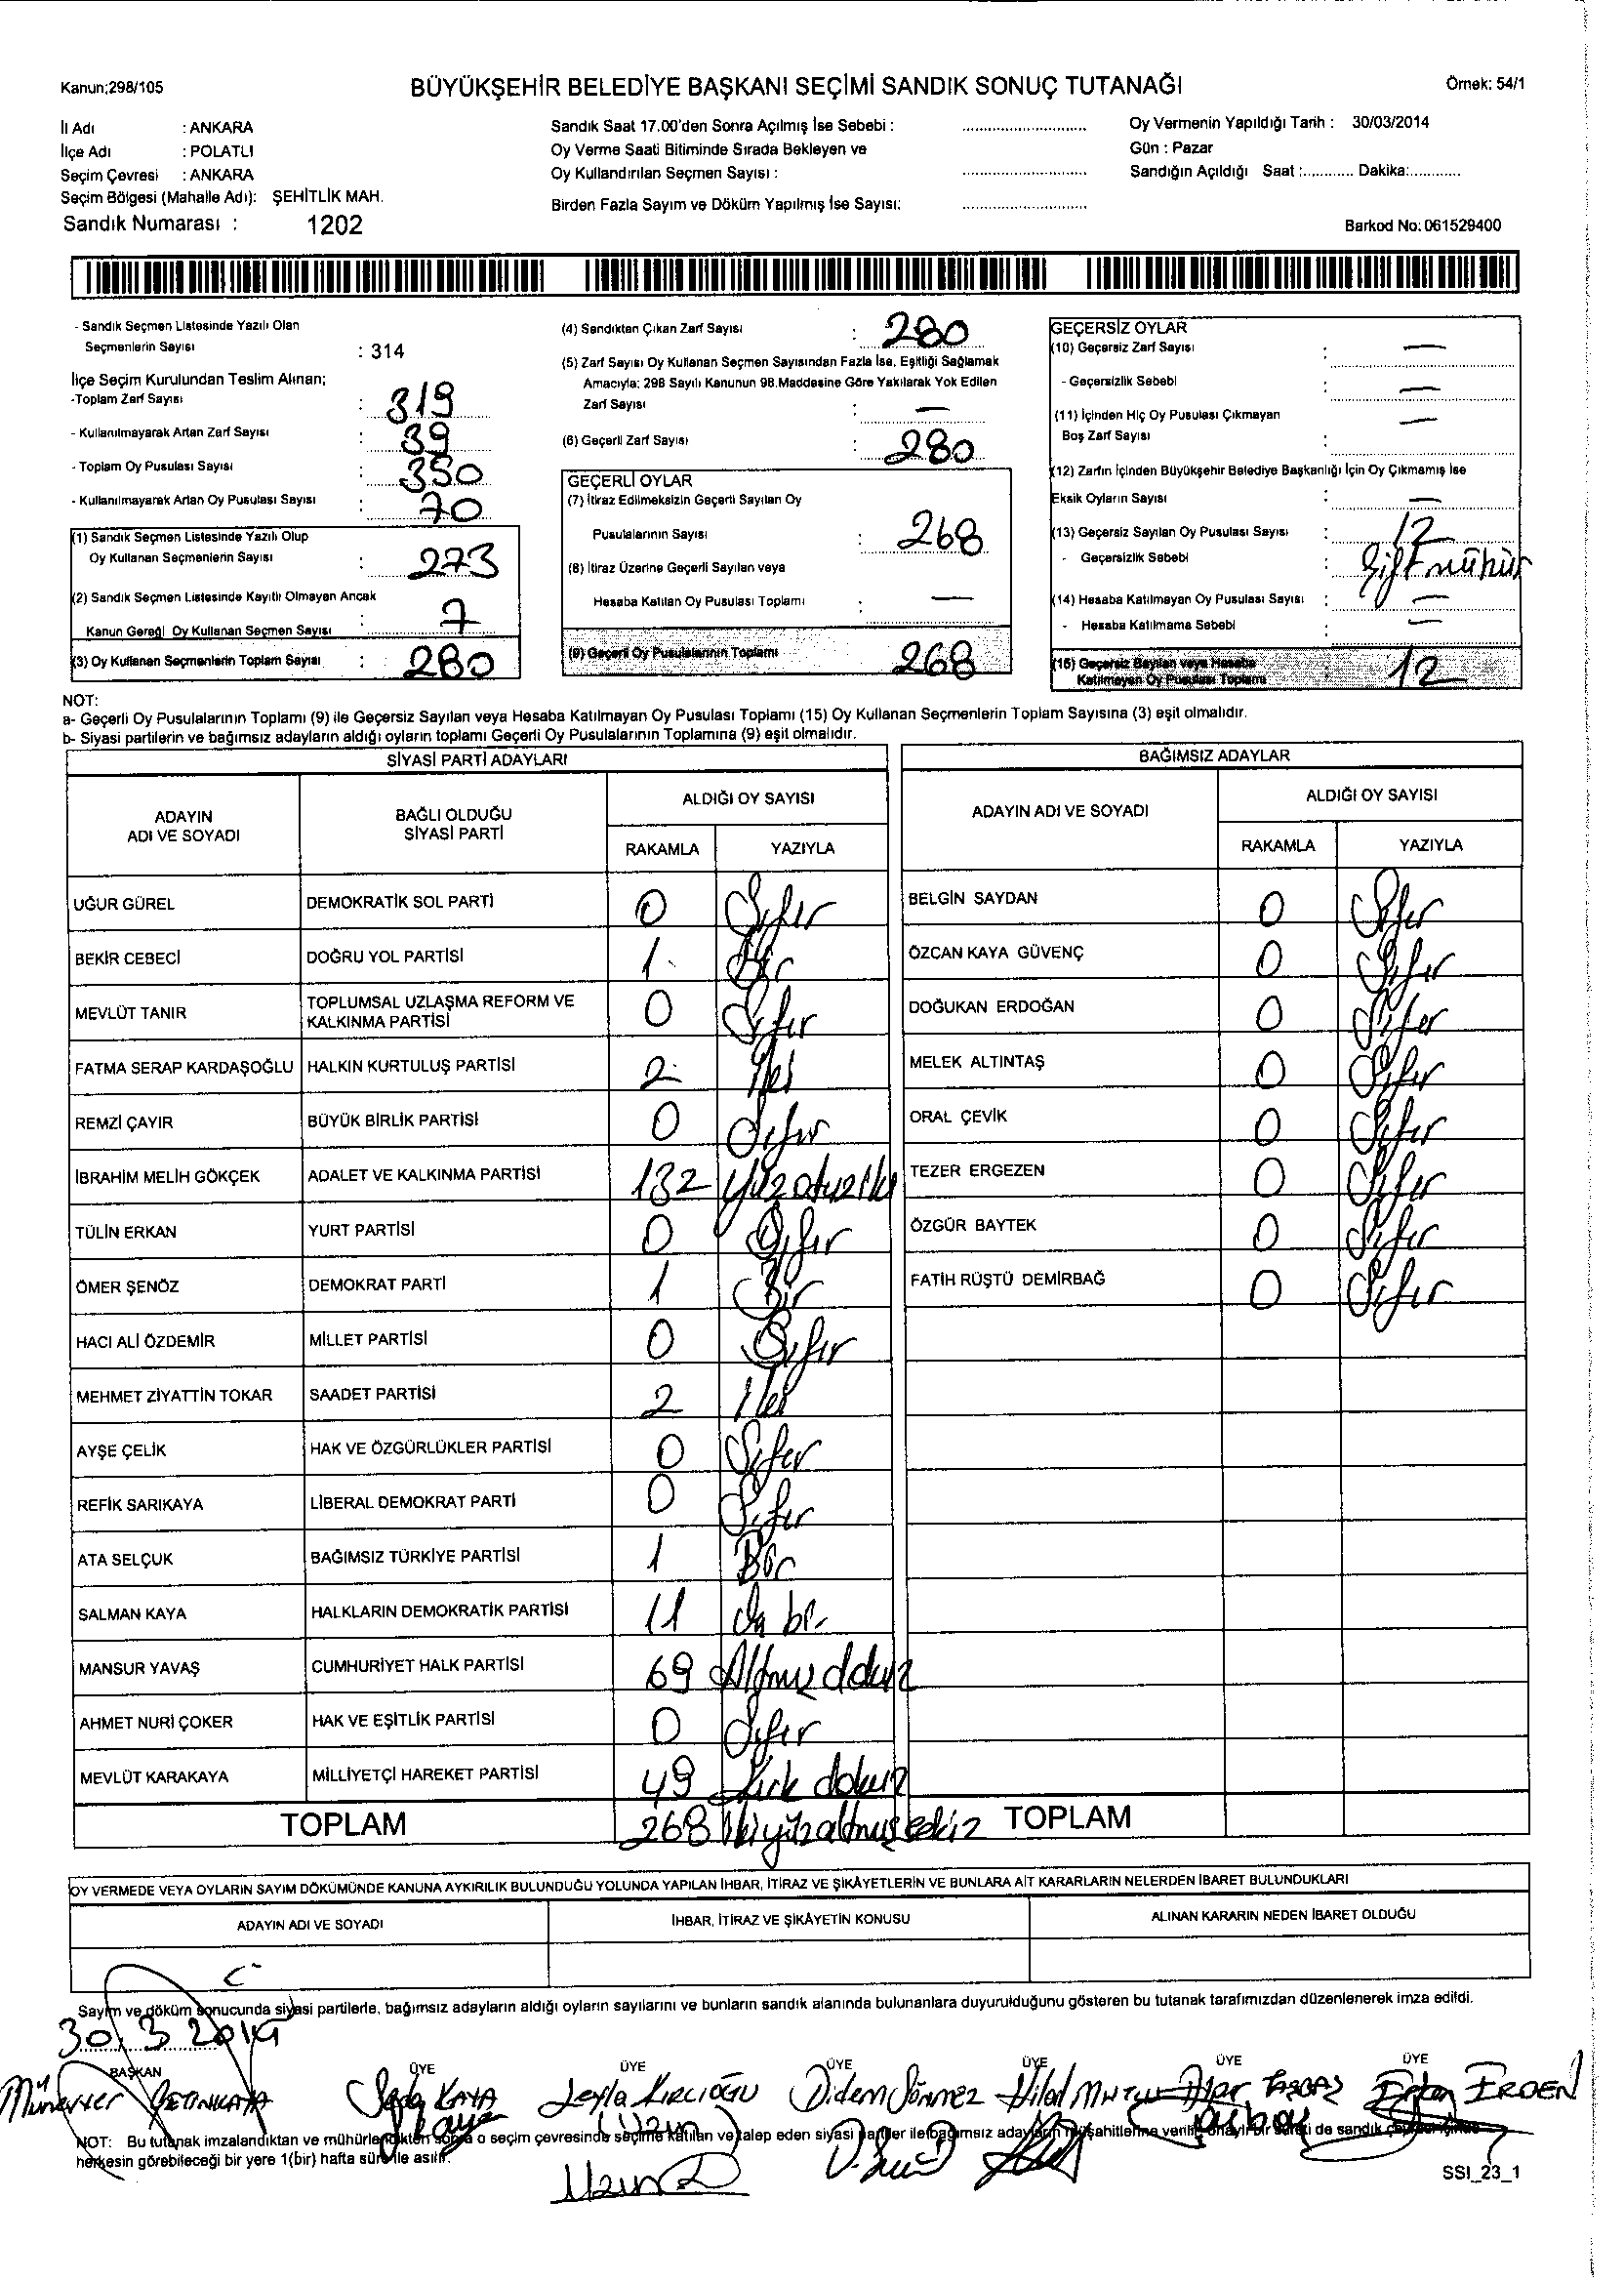 Kanun;298/105
BÜYÜKŞEHİR BELEDİYE BAŞKANI SEÇİMİ SANDIK SONUÇ TUTANAĞI
Örnek: 54/1
İl Adı : ANKARA
İlçe Adı : POLATLI
Seçim Çevresi : ANKARA
Seçim Bölgesi (Mahalle Adı): ŞEHİTLİK MAH.
Sandık Numarası : 1202
Sandık Saat 17.00'den Sonra Açılmış İse Sebebi :
Oy Verme Saati Bitiminde Sırada Bekleyen ve
Oy Kullandırılan Seçmen Sayısı :
Birden Fazla Sayım ve Döküm Yapılmış İse Sayısı:
Oy Vermenin Yapıldığı Tarih : 30/03/2014
Gün : Pazar
Sandığın Açıldığı Saat :............ Dakika:............
Barkod No: 061529400
- Sandık Seçmen Listesinde Yazılı Olan
Seçmenlerin Sayısı : 314
İlçe Seçim Kurulundan Teslim Alınan;
-Toplam Zarf Sayısı : 319
- Kullanılmayarak Artan Zarf Sayısı : 39
- Toplam Oy Pusulası Sayısı : 350
- Kullanılmayarak Artan Oy Pusulası Sayısı : 70
(1) Sandık Seçmen Listesinde Yazılı Olup
Oy Kullanan Seçmenlerin Sayısı : 273
(2) Sandık Seçmen Listesinde Kayıtlı Olmayan Ancak
Kanun Gereği Oy Kullanan Seçmen Sayısı : 7
(3) Oy Kullanan Seçmenlerin Toplam Sayısı : 280
(4) Sandıktan Çıkan Zarf Sayısı : 280
(5) Zarf Sayısı Oy Kullanan Seçmen Sayısından Fazla İse, Eşitliği Sağlamak
Amacıyla: 298 Sayılı Kanunun 98.Maddesine Göre Yakılarak Yok Edilen
Zarf Sayısı : —
(6) Geçerli Zarf Sayısı : 280
GEÇERLİ OYLAR
(7) İtiraz Edilmeksizin Geçerli Sayılan Oy
Pusulalarının Sayısı : 268
(8) İtiraz Üzerine Geçerli Sayılan veya
Hesaba Katılan Oy Pusulası Toplamı : —
(9) Geçerli Oy Pusulalarının Toplamı 268
GEÇERSİZ OYLAR
(10) Geçersiz Zarf Sayısı : —
- Geçersizlik Sebebi : —
(11) İçinden Hiç Oy Pusulası Çıkmayan
Boş Zarf Sayısı : —
(12) Zarfın İçinden Büyükşehir Belediye Başkanlığı İçin Oy Çıkmamış İse
Eksik Oyların Sayısı : —
(13) Geçersiz Sayılan Oy Pusulası Sayısı : 12
- Geçersizlik Sebebi : Çift mühür
(14) Hesaba Katılmayan Oy Pusulası Sayısı : —
- Hesaba Katılmama Sebebi : —
(15) Geçersiz Sayılan veya Hesaba
Katılmayan Oy Pusulası Toplamı : 12
NOT:
a- Geçerli Oy Pusulalarının Toplamı (9) ile Geçersiz Sayılan veya Hesaba Katılmayan Oy Pusulası Toplamı (15) Oy Kullanan Seçmenlerin Toplam Sayısına (3) eşit olmalıdır.
b- Siyasi partilerin ve bağımsız adayların aldığı oyların toplamı Geçerli Oy Pusulalarının Toplamına (9) eşit olmalıdır.
SİYASİ PARTİ ADAYLARI
ADAYIN ADI VE SOYADI BAĞLI OLDUĞU SİYASİ PARTİ ALDIĞI OY SAYISI
RAKAMLA YAZIYLA
UĞUR GÜREL DEMOKRATİK SOL PARTİ 0 Sıfır
BEKİR CEBECİ DOĞRU YOL PARTİSİ 1 Bir
MEVLÜT TANIR TOPLUMSAL UZLAŞMA REFORM VE KALKINMA PARTİSİ 0 Sıfır
FATMA SERAP KARDAŞOĞLU HALKIN KURTULUŞ PARTİSİ 2 İki
REMZİ ÇAYIR BÜYÜK BİRLİK PARTİSİ 0 Sıfır
İBRAHİM MELİH GÖKÇEK ADALET VE KALKINMA PARTİSİ 132 Yüzotuziki
TÜLİN ERKAN YURT PARTİSİ 0 Sıfır
ÖMER ŞENÖZ DEMOKRAT PARTİ 1 Bir
HACI ALİ ÖZDEMİR MİLLET PARTİSİ 0 Sıfır
MEHMET ZİYATTİN TOKAR SAADET PARTİSİ 2 İki
AYŞE ÇELİK HAK VE ÖZGÜRLÜKLER PARTİSİ 0 Sıfır
REFİK SARIKAYA LİBERAL DEMOKRAT PARTİ 0 Sıfır
ATA SELÇUK BAĞIMSIZ TÜRKİYE PARTİSİ 1 Bir
SALMAN KAYA HALKLARIN DEMOKRATİK PARTİSİ 11 On bir
MANSUR YAVAŞ CUMHURİYET HALK PARTİSİ 69 Altmış dokuz
AHMET NURİ ÇOKER HAK VE EŞİTLİK PARTİSİ 0 Sıfır
MEVLÜT KARAKAYA MİLLİYETÇİ HAREKET PARTİSİ 49 Kırk dokuz
TOPLAM 268 İkiyüzaltmışsekiz
BAĞIMSIZ ADAYLAR
ADAYIN ADI VE SOYADI ALDIĞI OY SAYISI
RAKAMLA YAZIYLA
BELGİN SAYDAN 0 Sıfır
ÖZCAN KAYA GÜVENÇ 0 Sıfır
DOĞUKAN ERDOĞAN 0 Sıfır
MELEK ALTINTAŞ 0 Sıfır
ORAL ÇEVİK 0 Sıfır
TEZER ERGEZEN 0 Sıfır
ÖZGÜR BAYTEK 0 Sıfır
FATİH RÜŞTÜ DEMİRBAĞ 0 Sıfır
TOPLAM
OY VERMEDE VEYA OYLARIN SAYIM DÖKÜMÜNDE KANUNA AYKIRILIK BULUNDUĞU YOLUNDA YAPILAN İHBAR, İTİRAZ VE ŞİKÂYETLERİN VE BUNLARA AİT KARARLARIN NELERDEN İBARET BULUNDUKLARI
ADAYIN ADI VE SOYADI İHBAR, İTİRAZ VE ŞİKÂYETİN KONUSU ALINAN KARARIN NEDEN İBARET OLDUĞU
Sayım ve döküm sonucunda siyasi partilerle, bağımsız adayların aldığı oyların sayılarını ve bunların sandık alanında bulunanlara duyurulduğunu gösteren bu tutanak tarafımızdan düzenlenerek imza edildi.
30.3.2014
BAŞKAN ÜYE ÜYE ÜYE ÜYE ÜYE ÜYE
Münevver ÇETİNKAYA Seda KAYA Leyla KIRCIOĞU Didem Sönmez Hilal ERDEN
NOT: Bu tutanak imzalandıktan ve mühürlendikten sonra o seçim çevresinde seçime katılan ve talep eden siyasi partiler ile bağımsız adayların müşahitlerine verilir, onaylı bir sureti de sandık çevresi içinde
herkesin görebileceği bir yere 1(bir) hafta süre ile asılır.
SSI_23_1